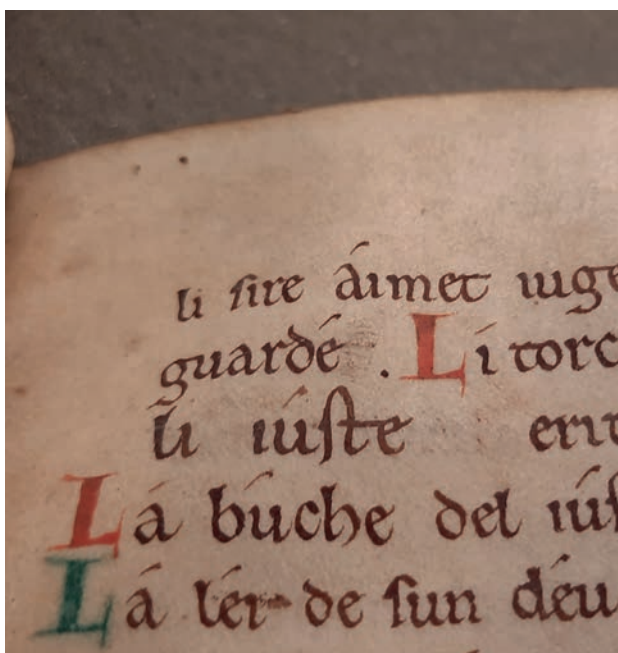 li sire áimet iuge
guardé . Li torc
li iúste erit
Lá búche del iús
Lá léi de sun déu